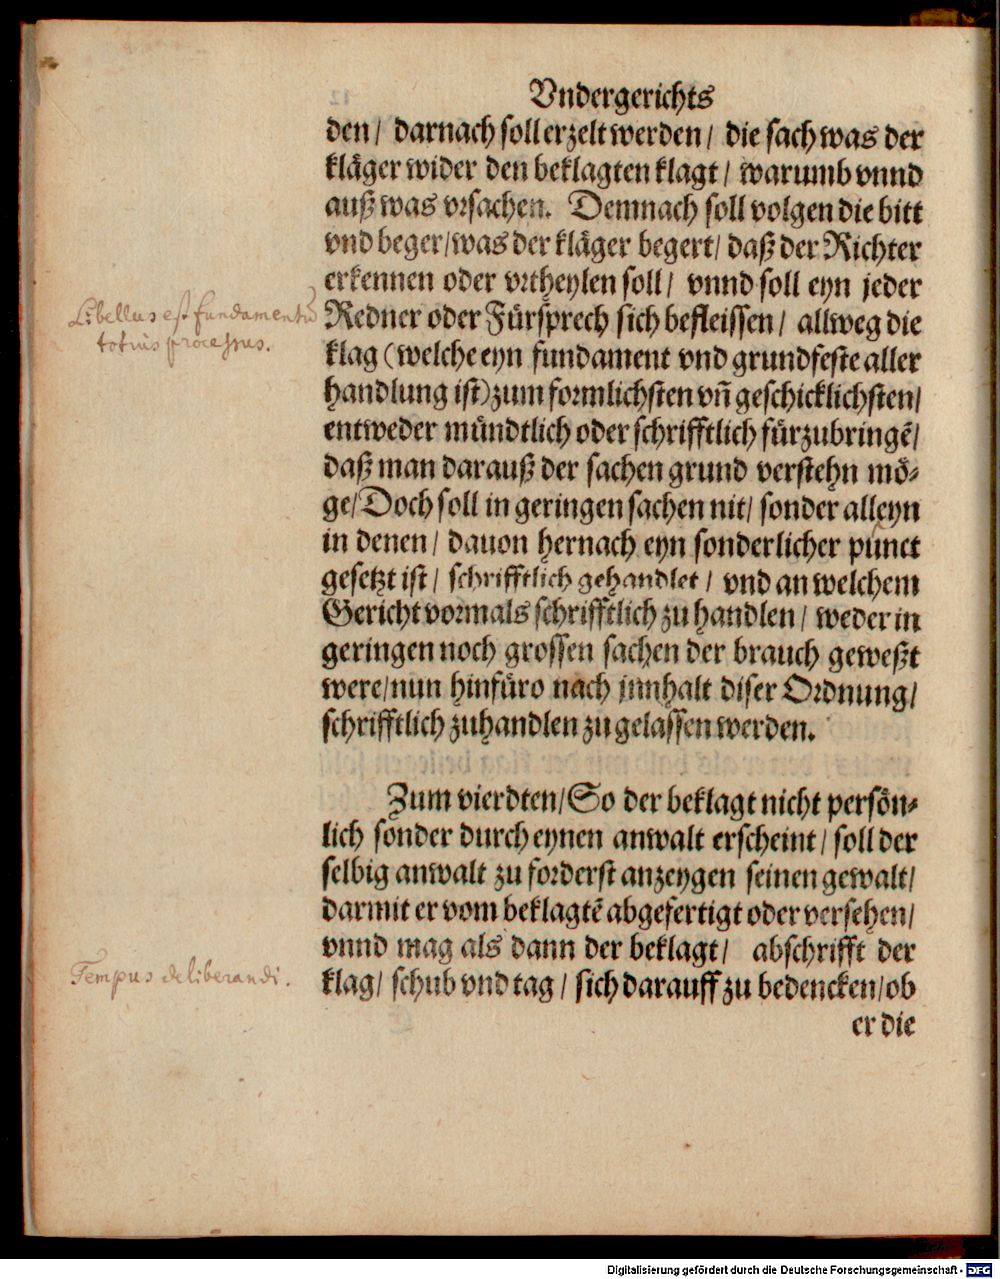 Vndergerichts
den/ darnach soll erzelt werden/ die sach was der
kläger wider den beklagten klagt/ warumb vnnd
auß was vrsachen. Demnach soll volgen die bitt
vnd beger/was der kläger begert/ daß der Richter
erkennen oder vrtheylen soll/ vnnd soll eyn jeder
Libellus est fundamentū
Redner oder Fürsprech sich befleissen/ allweg die
totius processus.
klag (welche eyn fundament vnd grundfeste aller
handlung ist) zum formlichsten vñ geschicklichsten/
entweder mündtlich oder schrifftlich fürzubringē/
daß man darauß der sachen grund verstehn mö-
ge/ Doch soll in geringen sachen nit/ sonder alleyn
in denen/ dauon hernach eyn sonderlicher punct
gesetzt ist/ schrifftlich gehandlet/ vnd an welchem
Gericht vormals schrifftlich zu handlen/ weder in
geringen noch grossen sachen der brauch geweßt
were/nun hinfüro nach jnnhalt diser Ordnung/
schrifftlich zuhandlen zu gelassen werden.
Zum vierdten/ So der beklagt nicht persön-
lich sonder durch eynen anwalt erscheint/ soll der
selbig anwalt zu forderst anzeygen seinen gewalt/
darmit er vom beklagtē abgefertigt oder versehen/
vnnd mag als dann der beklagt/ abschrifft der
Tempus deliberandi.
klag/ schub vnd tag/ sich darauff zu bedencken/ob
er die
Digitalisierung gefördert durch die Deutsche Forschungsgemeinschaft - DFG